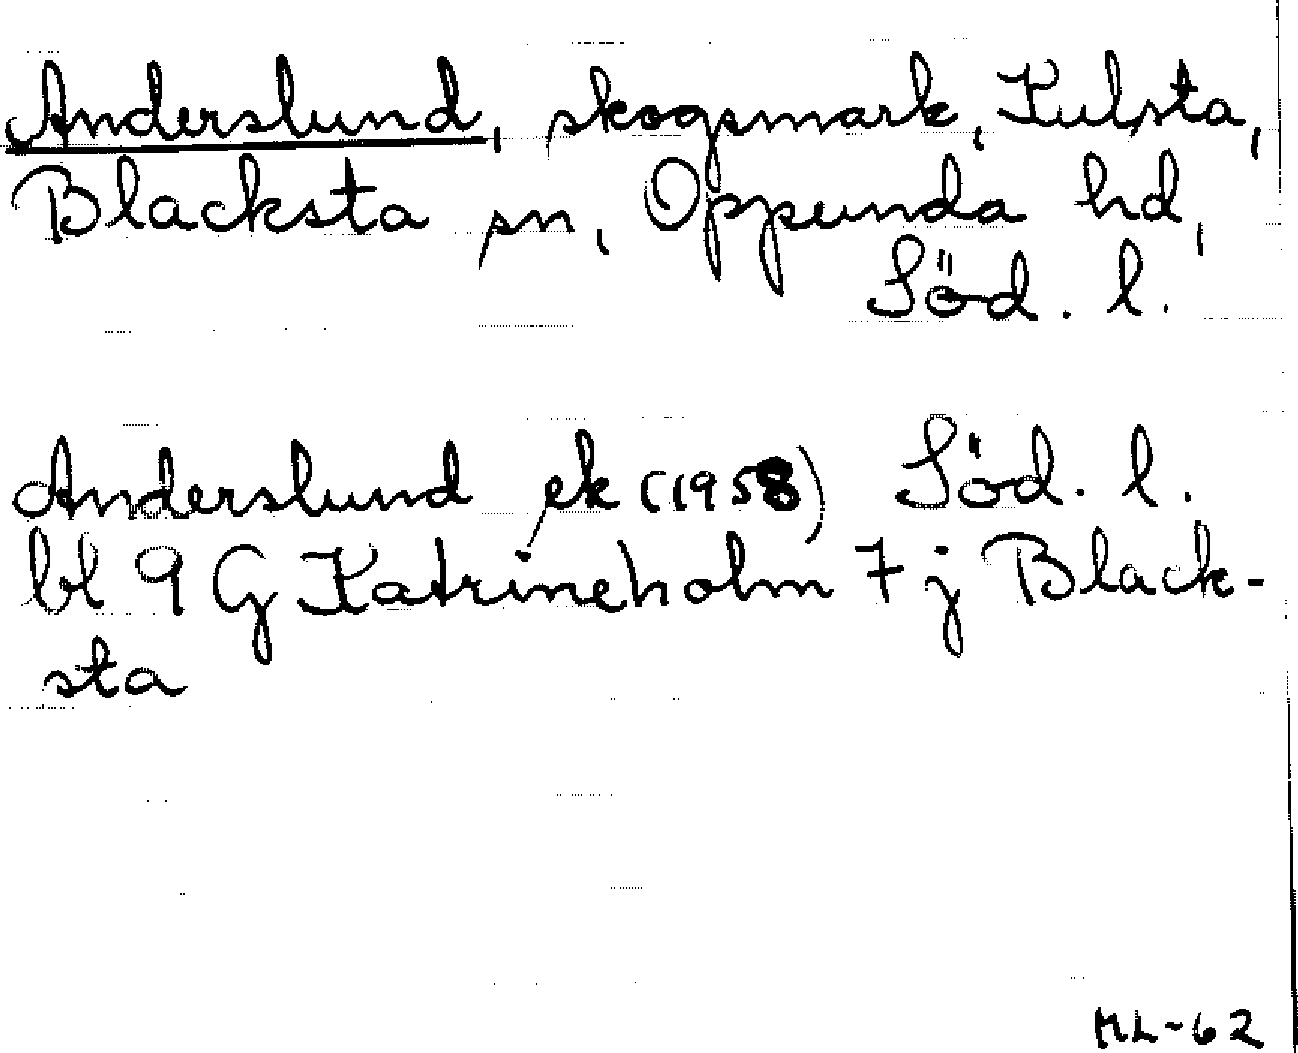 Anderslund, skogsmark, Kulsta,
Blacksta sn, Oppunda hd,
Söd. l.
Anderslund ek (1958) Söd. l.
bl 9 G Katrineholm 7 j Black-
sta
ML-62